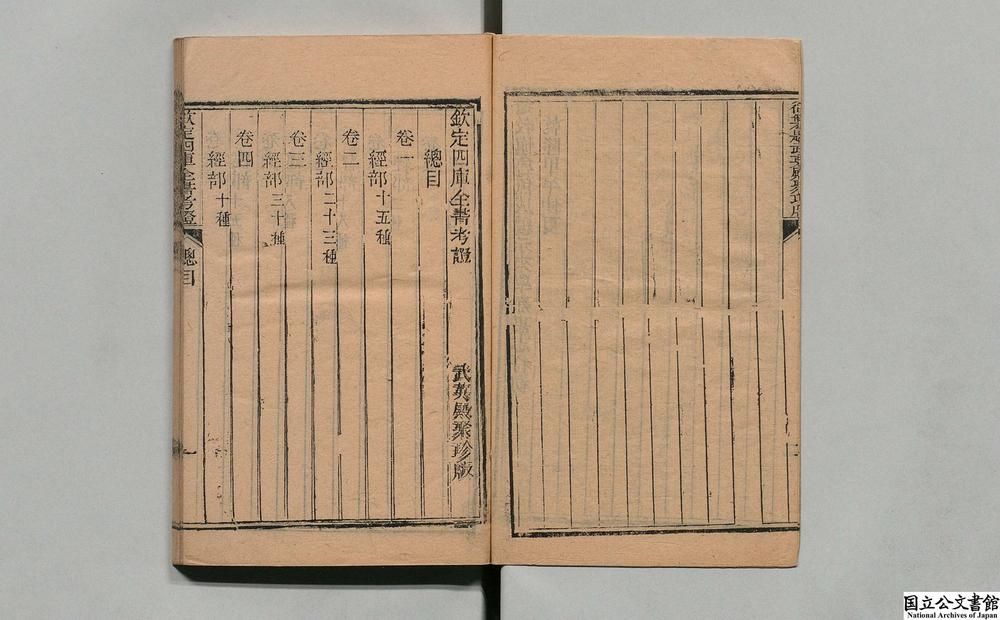 欽定四庫全書考證
武英殿聚珍版
總目
卷一
經部十五種
卷二
經部二十三種
卷三
經部三十種
卷四
經部十種
欽定四庫全書考證
總目
一
国立公文書館
National Archives of Japan